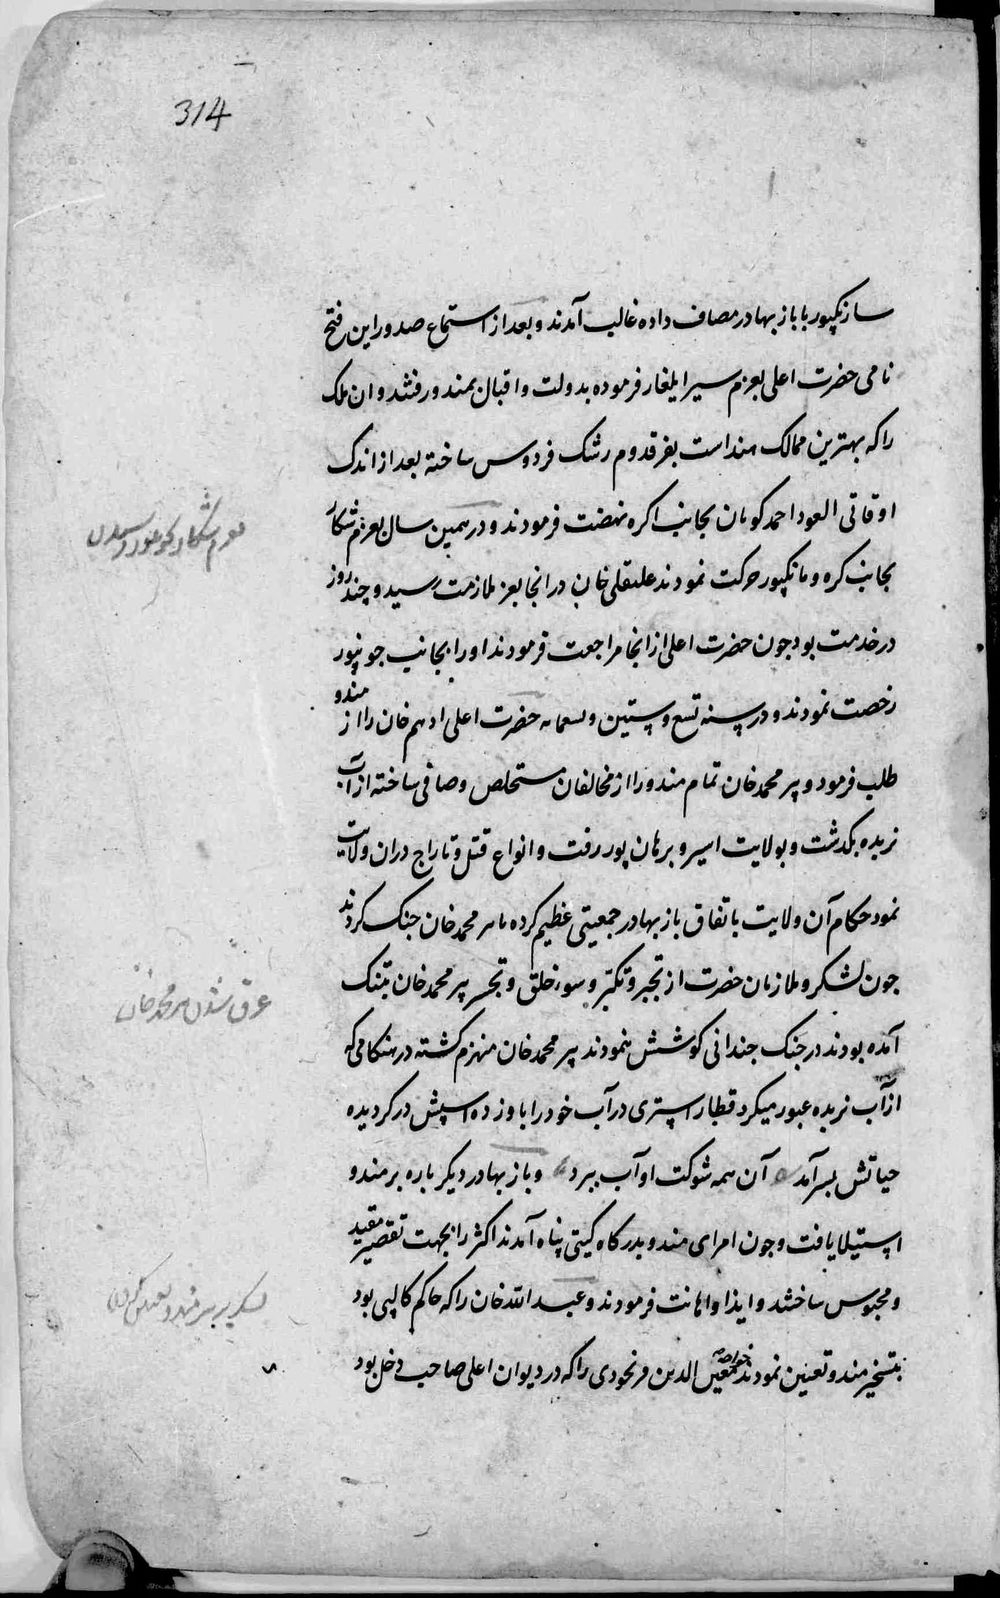 314
سازنکپور با باز بهادر مصاف داده غالب آمدند و بعد از استماع صدور این فتح
نامی حضرت اعلی بعزم سیر ایلغار فرموده بدولت و اقبال بمندو رفتند و ان ملک
را که بهترین ممالک هند است بفر قدوم رشک فردوس ساخته بعد از اندک
اوقاتی العود احمد کویان بجانب اکره نهضت فرمودند و در همین سال بعزم شکار
بجانب کره و مانکپور حرکت نمودند علیقلی خان در انجا بعز ملازمت رسید و چند روز
در خدمت بود جون حضرت اعلی از انجا مراجعت فرمودند او را بجانب جونپور
رخصت نمودند و در سنه تسع و ستین و تسعمایه حضرت اعلی ادهم خان را از مندو
طلب فرمود و پیر محمد خان تمام مندو را از مخالفان مستخلص و صافی ساخته از آب
نربده بکذشت و بولایت اسیر و برهان پور رفت و انواع قتل و تاراج دران ولایت
نمود حکام آن ولایت باتفاق باز بهادر جمعیتی عظیم کرده با پیر محمد خان جنک کردند
جون لشکر و ملازمان حضرت از تجبر و تکبر و سوء خلق و تجسر پیر محمد خان بتنک
آمده بودند در جنک جندانی کوشش ننمودند پیر محمد خان منهزم کشته در هنکامی که
از آب نربده عبور میکرد قطار استری در آب خود را باو زده اسپش در کردیده
حیاتش بسر آمد آن همه شوکت او آب ببرد و باز بهادر دیکر باره بر مندو
استیلا یافت و جون امرای مندو بدرکاه کیتی پناه آمدند اکثر را بجهت تقصیر مقید
و محبوس ساختند و ایذا و اهانت فرمودند و عبد الله خان را که حاکم کالپی بود
بتسخیر مندو تعیین نمودند خواجه معین الدین فرنخودی را که در دیوان اعلی صاحب دخل بود
غرق شدن پیر محمد خان